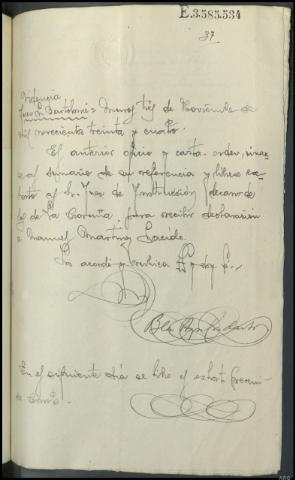 E.3.585.534
37
Providencia
Juez Sr. Bartolomé = Muros, tres de Noviembre de
mil novecientos treinta y cuatro.
El anterior oficio y carta-orden, únase
al sumario de su referencia y líbrese ex-
horto al Sr. Juez de Instrucción decano de
los de La Coruña, para recibir declaración
a Manuel Martínez Lacide.
Lo acordó y rubrica SSª y doy fe.-
En el siguiente día se libró el exhorto preveni-
do. Doy fe.